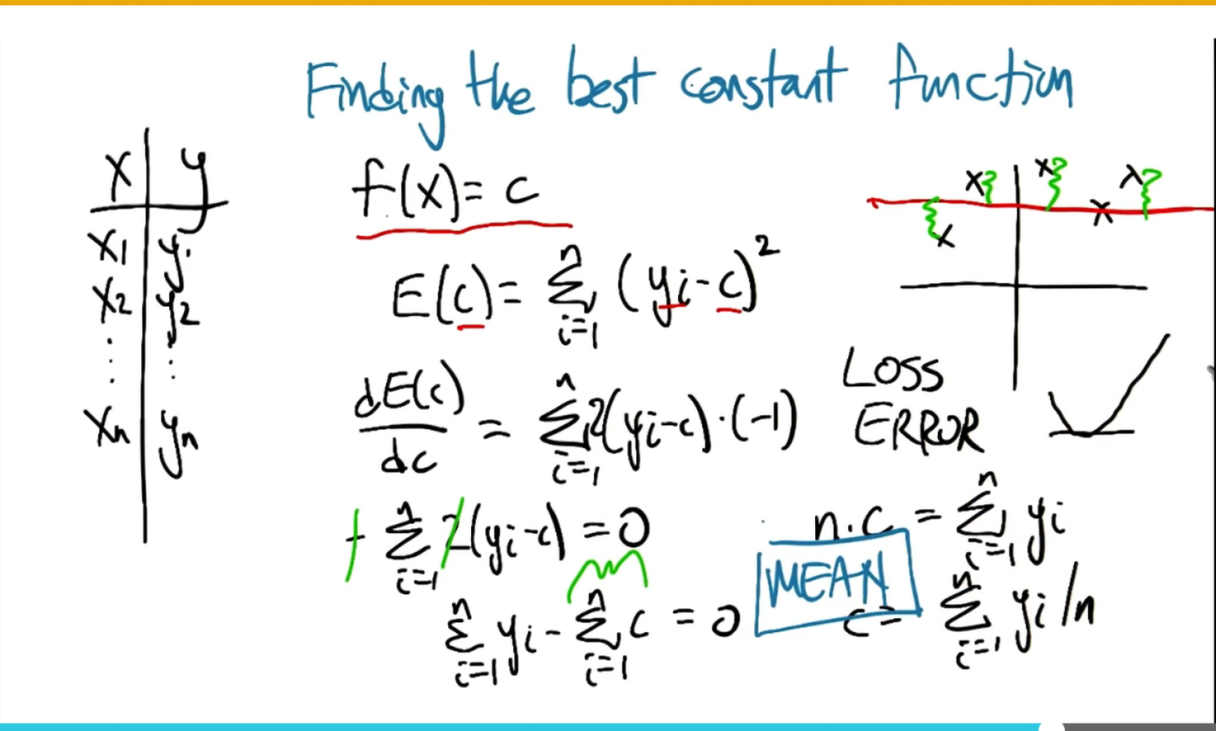 Finding the best constant function
x | y
x1 | y1
x2 | y2
⋮ | ⋮
xn | yn
f(x) = c
E(c) = Σ_{i=1}^{n} (yi - c)^2
dE(c)/dc = Σ_{i=1}^{n} 2(yi - c)·(-1)
LOSS
ERROR
- Σ_{i=1}^{n} 2(yi - c) = 0
Σ_{i=1}^{n} yi - Σ_{i=1}^{n} c = 0
n·c = Σ_{i=1}^{n} yi
MEAN
c = Σ_{i=1}^{n} yi/n